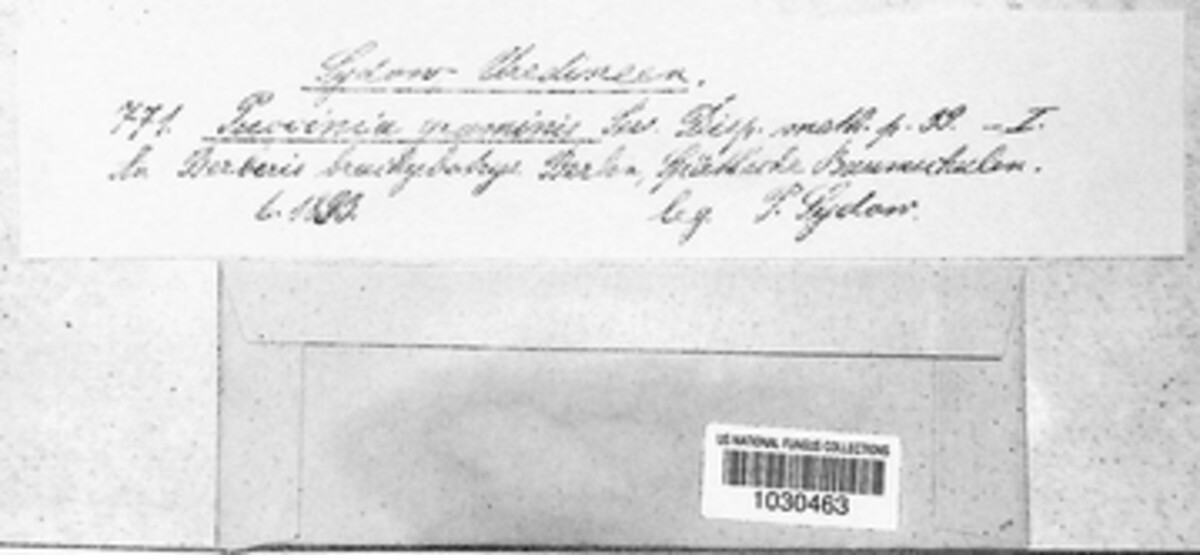 Sydow Uredineen.
771. Puccinia graminis Disp. meth. p. 39. - I.
An Berberis brachybotrys Berlin, Späthsche Baumschulen.
6. 1893. leg. P. Sydow.
US NATIONAL FUNGUS COLLECTIONS
1030463